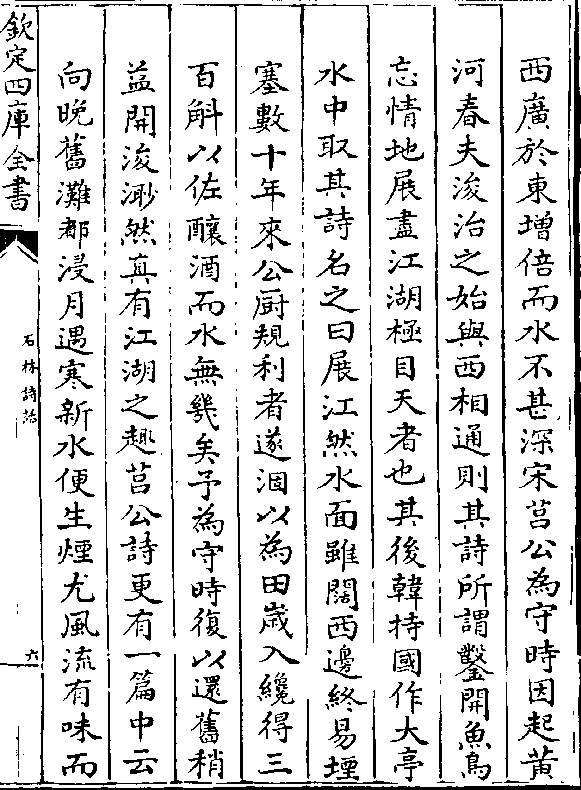 西廣於東增倍而水不甚深宋莒公為守時因起黃
河春夫浚治之始與西相通則其詩所謂鑿開魚鳥
忘情地展盡江湖極目天者也其後韓持國作大亭
水中取其詩名之曰展江然水面雖闊西邊終易堙
塞數十年來公厨規利者遂涸以為田歲入纔得三
百斛以佐釀酒而水無幾矣予為守時復以還舊稍
益開浚渺然真有江湖之趣莒公詩更有一篇中云
向晚舊灘都浸月遇寒新水便生煙尤風流有味而
欽定四庫全書
石林詩話
六